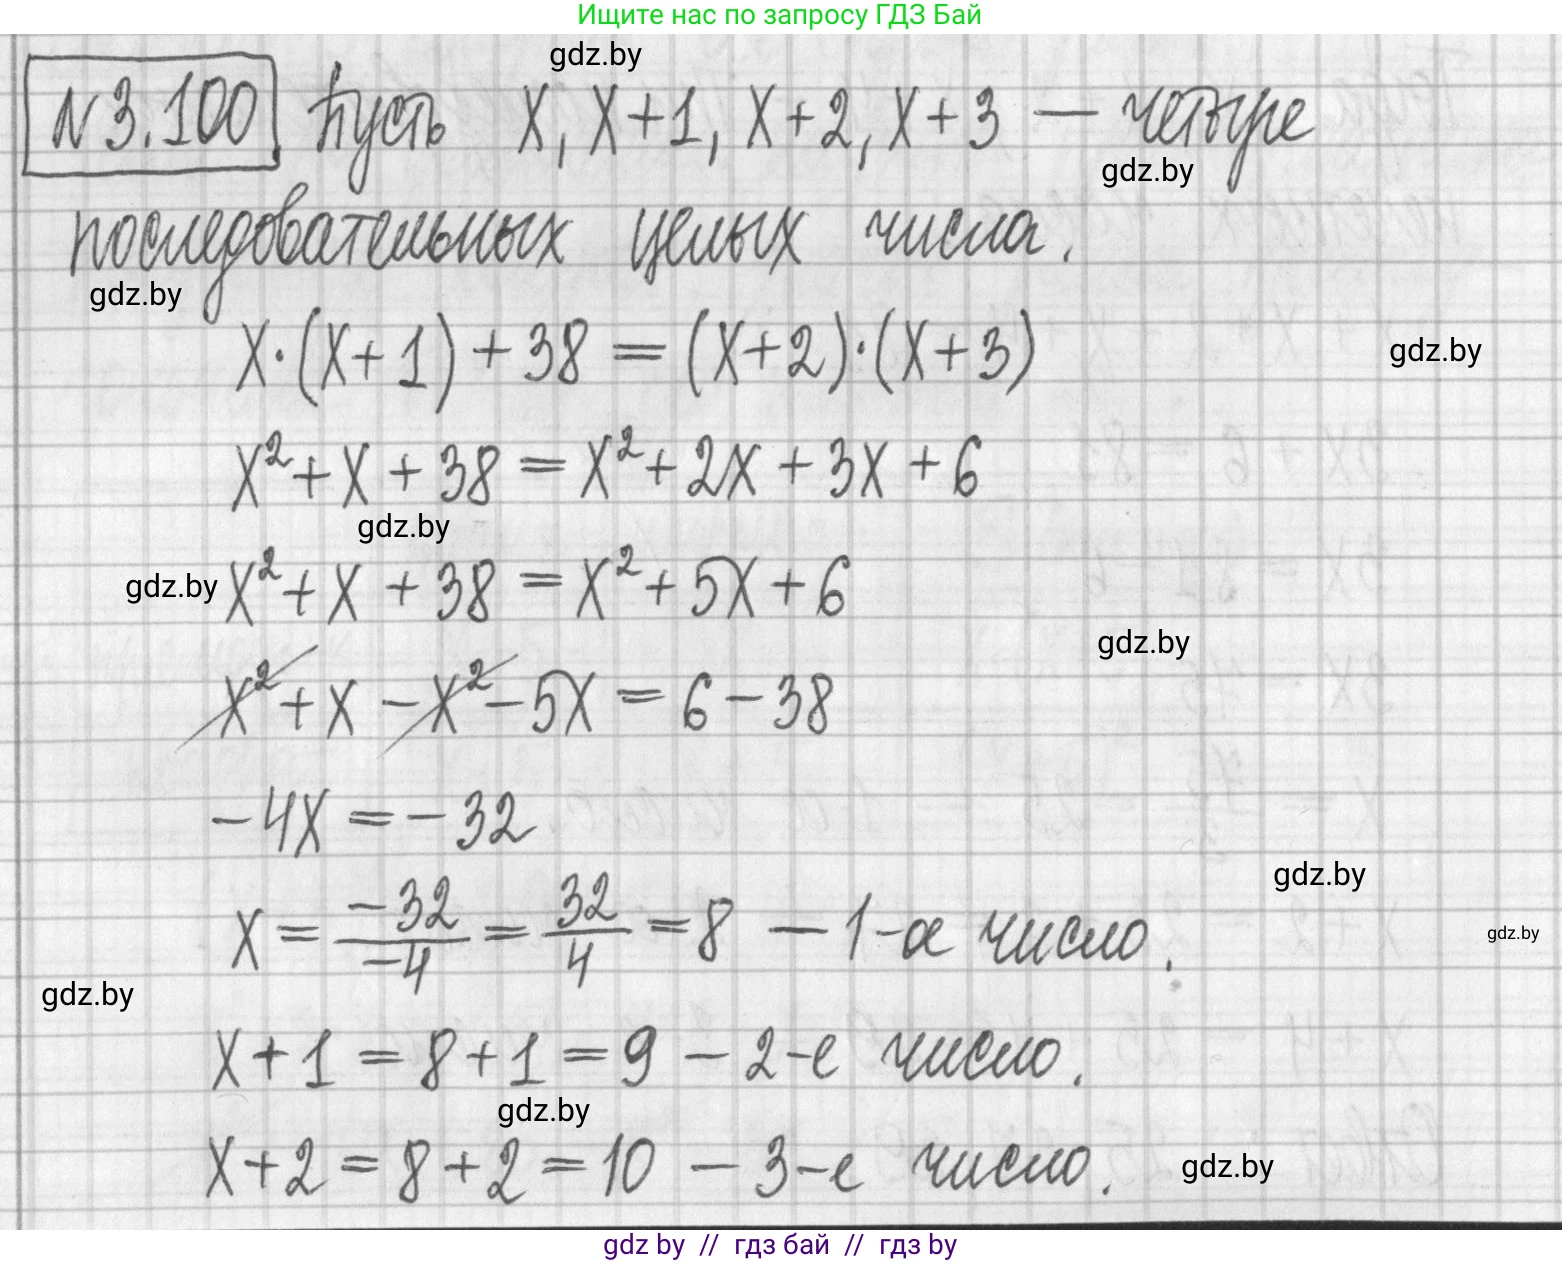 Ищите нас по запросу ГДЗ Бай
gdz.by
N 3.100 Пусть x, x+1, x+2, x+3 — четыре
gdz.by
последовательных целых числа.
gdz.by
x·(x+1)+38=(x+2)·(x+3)
gdz.by
x²+x+38=x²+2x+3x+6
gdz.by
gdz.by x²+x+38=x²+5x+6
gdz.by
x²+x-x²-5x=6-38
-4x=-32
gdz.by
x=-32/-4=32/4=8 — 1-ое число.
gdz.by
gdz.by
x+1=8+1=9 — 2-е число.
gdz.by
x+2=8+2=10 — 3-е число.
gdz.by
gdz by // гдз бай // гдз by